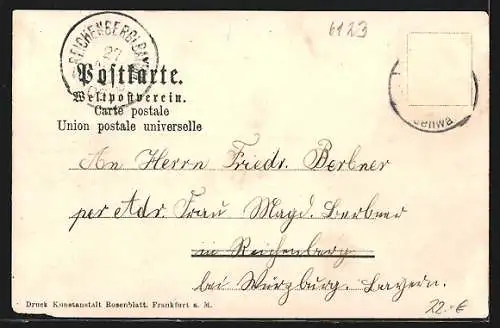 6123
REICHENBERG
27
Postkarte.
Weltpostverein.
Carte postale
Union postale universelle
An Herrn Friedr. Berbner
per Adr. Frau Magd. Berbner
in Reichenberg
bei Würzburg. Bayern.
Druck Kunstanstalt Rosenblatt. Frankfurt a. M.
22.-€